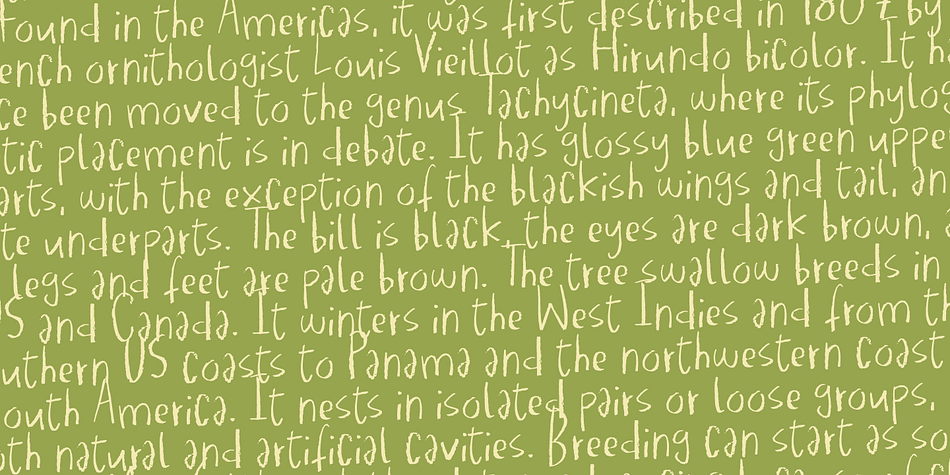 Found in the Americas, it was first described in 180 by
ench ornithologist Louis Vieillot as Hirundo bicolor. It h
ce been moved to the genus Tachycineta, where its phylo
tic placement is in debate. It has glossy blue green uppe
arts, with the exception of the blackish wings and tail, an
te underparts. The bill is black, the eyes are dark brown, a
legs and feet are pale brown. The tree swallow breeds in
S and Canada. It winters in the West Indies and from th
uthern US coasts to Panama and the northwestern coast
outh America. It nests in isolated pairs or loose groups,
oth natural and artificial cavities. Breeding can start as so